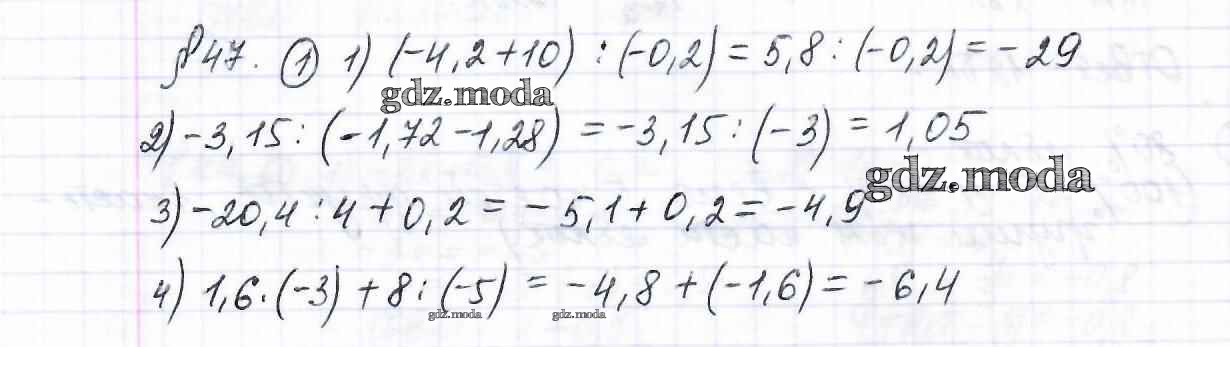 § 47. ① 1) (-4,2+10) : (-0,2) = 5,8 : (-0,2) = -29
gdz.moda
2) -3,15 : (-1,72-1,28) = -3,15 : (-3) = 1,05
gdz.moda
3) -20,4 : 4 + 0,2 = -5,1 + 0,2 = -4,9
4) 1,6 · (-3) + 8 : (-5) = -4,8 + (-1,6) = -6,4
gdz.moda gdz.moda